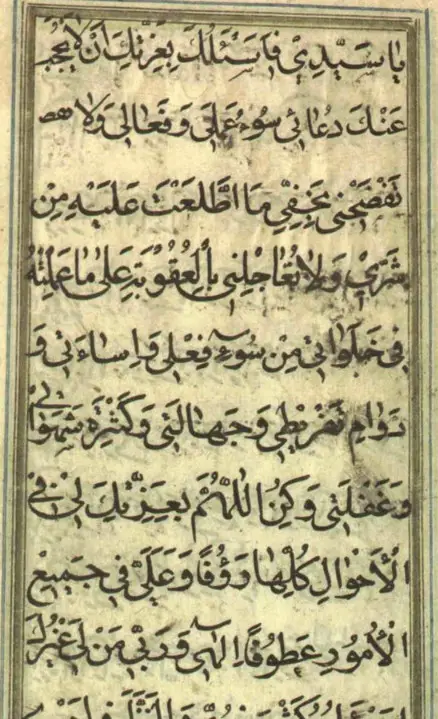 يا سَيِّدِي فَاَسْئَلُكَ بِعِزَّتِكَ اَنْ لا يَحْجُبَ
عَنْكَ دُعائي سُوءُ عَمَلي وَفَعالي وَلا
تَفْضَحْني بِخَفِيِّ مَا اطَّلَعْتَ عَلَيْهِ مِنْ
سِرّي وَلا تُعاجِلْني بِالْعُقُوبَةِ عَلى ما عَمِلْتُهُ
في خَلَواتي مِنْ سُوءِ فِعْلي وَاِساءَتي وَ
دَوامِ تَفْريطي وَجَهالَتي وَكَثْرَةِ شَهَواتي
وَغَفْلَتي وَكُنِ اللّهُمَّ بِعِزَّتِكَ لي في
الْاَحْوالِ كُلِّها رَؤُفًا وَعَلَيَّ في جَميعِ
الْاُمُورِ عَطُوفًا اِلهي وَرَبّي مَنْ لي غَيْرُكَ